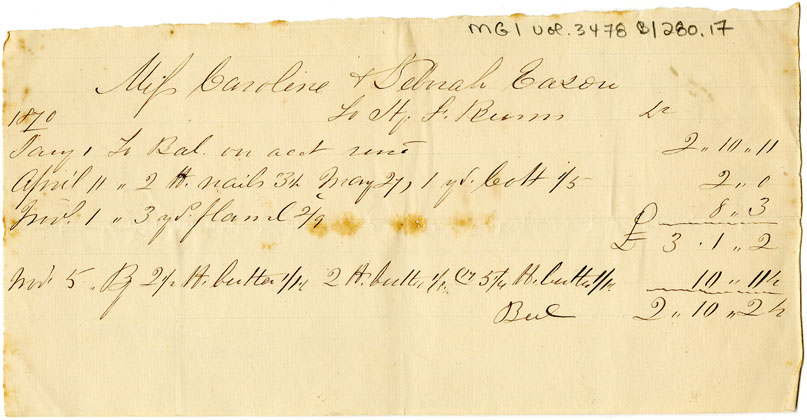 MG1 Vol. 3478 B1280.17
Miss Caroline & Debrah Eason
1870 To H, F. Dr
Jany 1 To Bal. on acct rent 2 " 10 " 11
April 11 " 2 lt. nails 3½ May 27, 1 yd. Cott 1/5 2 " 0
Nov. 1 " 3 yd. flanel 2/9 8 " 3
£ 3 . 1 " 2
Nov. 5 " By 2½ lt. butter 2 lt. butter 5¼ lt. butter 10 " 11½
Bal 2 " 10 " 2½